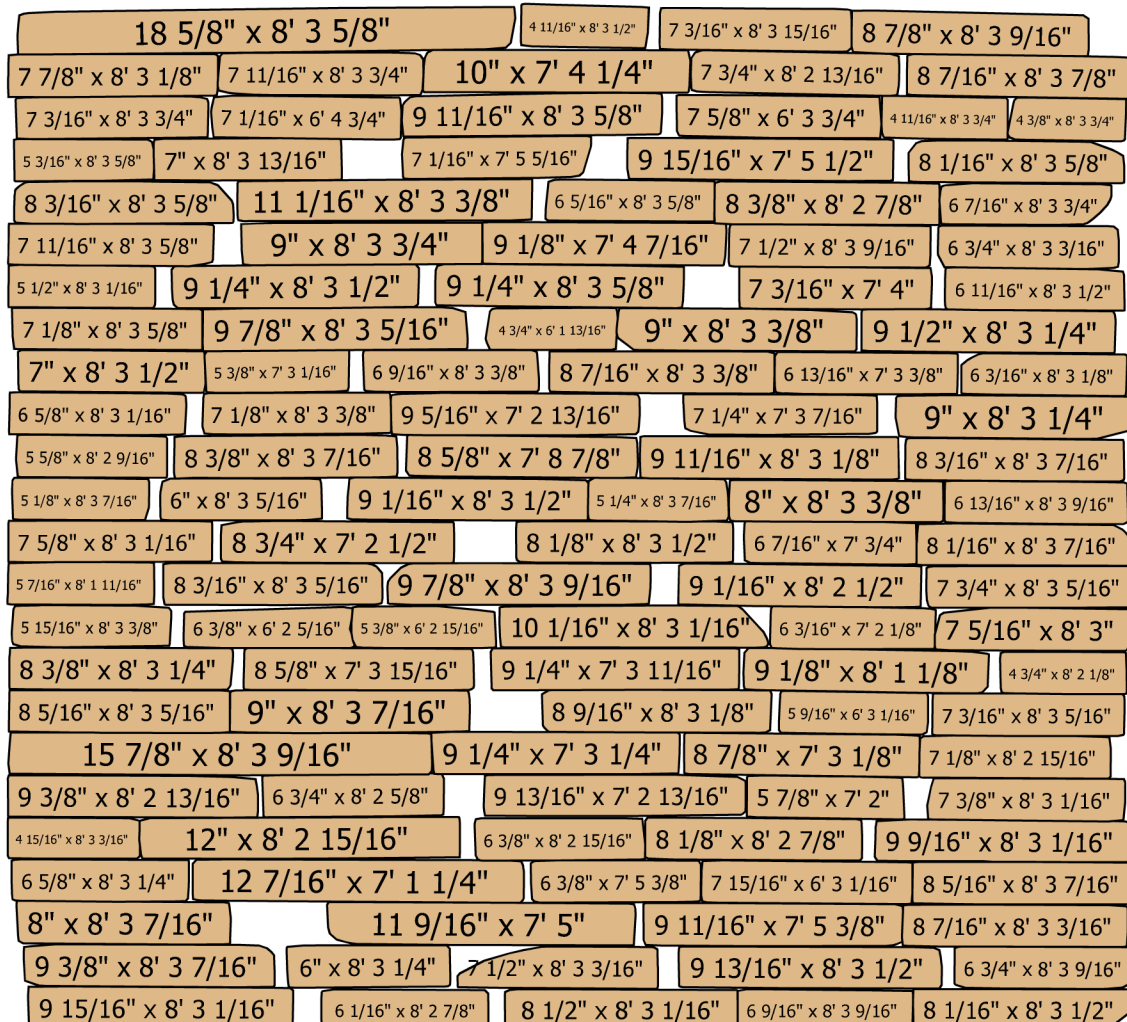 18 5/8" x 8' 3 5/8" 4 11/16" x 8' 3 1/2" 7 3/16" x 8' 3 15/16" 8 7/8" x 8' 3 9/16"
7 7/8" x 8' 3 1/8" 7 11/16" x 8' 3 3/4" 10" x 7' 4 1/4" 7 3/4" x 8' 2 13/16" 8 7/16" x 8' 3 7/8"
7 3/16" x 8' 3 3/4" 7 1/16" x 6' 4 3/4" 9 11/16" x 8' 3 5/8" 7 5/8" x 6' 3 3/4" 4 11/16" x 8' 3 3/4" 4 3/8" x 8' 3 3/4"
5 3/16" x 8' 3 5/8" 7" x 8' 3 13/16" 7 1/16" x 7' 5 5/16" 9 15/16" x 7' 5 1/2" 8 1/16" x 8' 3 5/8"
8 3/16" x 8' 3 5/8" 11 1/16" x 8' 3 3/8" 6 5/16" x 8' 3 5/8" 8 3/8" x 8' 2 7/8" 6 7/16" x 8' 3 3/4"
7 11/16" x 8' 3 5/8" 9" x 8' 3 3/4" 9 1/8" x 7' 4 7/16" 7 1/2" x 8' 3 9/16" 6 3/4" x 8' 3 3/16"
5 1/2" x 8' 3 1/16" 9 1/4" x 8' 3 1/2" 9 1/4" x 8' 3 5/8" 7 3/16" x 7' 4" 6 11/16" x 8' 3 1/2"
7 1/8" x 8' 3 5/8" 9 7/8" x 8' 3 5/16" 4 3/4" x 6' 1 13/16" 9" x 8' 3 3/8" 9 1/2" x 8' 3 1/4"
7" x 8' 3 1/2" 5 3/8" x 7' 3 1/16" 6 9/16" x 8' 3 3/8" 8 7/16" x 8' 3 3/8" 6 13/16" x 7' 3 3/8" 6 3/16" x 8' 3 1/8"
6 5/8" x 8' 3 1/16" 7 1/8" x 8' 3 3/8" 9 5/16" x 7' 2 13/16" 7 1/4" x 7' 3 7/16" 9" x 8' 3 1/4"
5 5/8" x 8' 2 9/16" 8 3/8" x 8' 3 7/16" 8 5/8" x 7' 8 7/8" 9 11/16" x 8' 3 1/8" 8 3/16" x 8' 3 7/16"
5 1/8" x 8' 3 7/16" 6" x 8' 3 5/16" 9 1/16" x 8' 3 1/2" 5 1/4" x 8' 3 7/16" 8" x 8' 3 3/8" 6 13/16" x 8' 3 9/16"
7 5/8" x 8' 3 1/16" 8 3/4" x 7' 2 1/2" 8 1/8" x 8' 3 1/2" 6 7/16" x 7' 3/4" 8 1/16" x 8' 3 7/16"
5 7/16" x 8' 1 11/16" 8 3/16" x 8' 3 5/16" 9 7/8" x 8' 3 9/16" 9 1/16" x 8' 2 1/2" 7 3/4" x 8' 3 5/16"
5 15/16" x 8' 3 3/8" 6 3/8" x 6' 2 5/16" 5 3/8" x 6' 2 15/16" 10 1/16" x 8' 3 1/16" 6 3/16" x 7' 2 1/8" 7 5/16" x 8' 3"
8 3/8" x 8' 3 1/4" 8 5/8" x 7' 3 15/16" 9 1/4" x 7' 3 11/16" 9 1/8" x 8' 1 1/8" 4 3/4" x 8' 2 1/8"
8 5/16" x 8' 3 5/16" 9" x 8' 3 7/16" 8 9/16" x 8' 3 1/8" 5 9/16" x 6' 3 1/16" 7 3/16" x 8' 3 5/16"
15 7/8" x 8' 3 9/16" 9 1/4" x 7' 3 1/4" 8 7/8" x 7' 3 1/8" 7 1/8" x 8' 2 15/16"
9 3/8" x 8' 2 13/16" 6 3/4" x 8' 2 5/8" 9 13/16" x 7' 2 13/16" 5 7/8" x 7' 2" 7 3/8" x 8' 3 1/16"
4 15/16" x 8' 3 3/16" 12" x 8' 2 15/16" 6 3/8" x 8' 2 15/16" 8 1/8" x 8' 2 7/8" 9 9/16" x 8' 3 1/16"
6 5/8" x 8' 3 1/4" 12 7/16" x 7' 1 1/4" 6 3/8" x 7' 5 3/8" 7 15/16" x 6' 3 1/16" 8 5/16" x 8' 3 7/16"
8" x 8' 3 7/16" 11 9/16" x 7' 5" 9 11/16" x 7' 5 3/8" 8 7/16" x 8' 3 3/16"
9 3/8" x 8' 3 7/16" 6" x 8' 3 1/4" 7 1/2" x 8' 3 3/16" 9 13/16" x 8' 3 1/2" 6 3/4" x 8' 3 9/16"
9 15/16" x 8' 3 1/16" 6 1/16" x 8' 2 7/8" 8 1/2" x 8' 3 1/16" 6 9/16" x 8' 3 9/16" 8 1/16" x 8' 3 1/2"